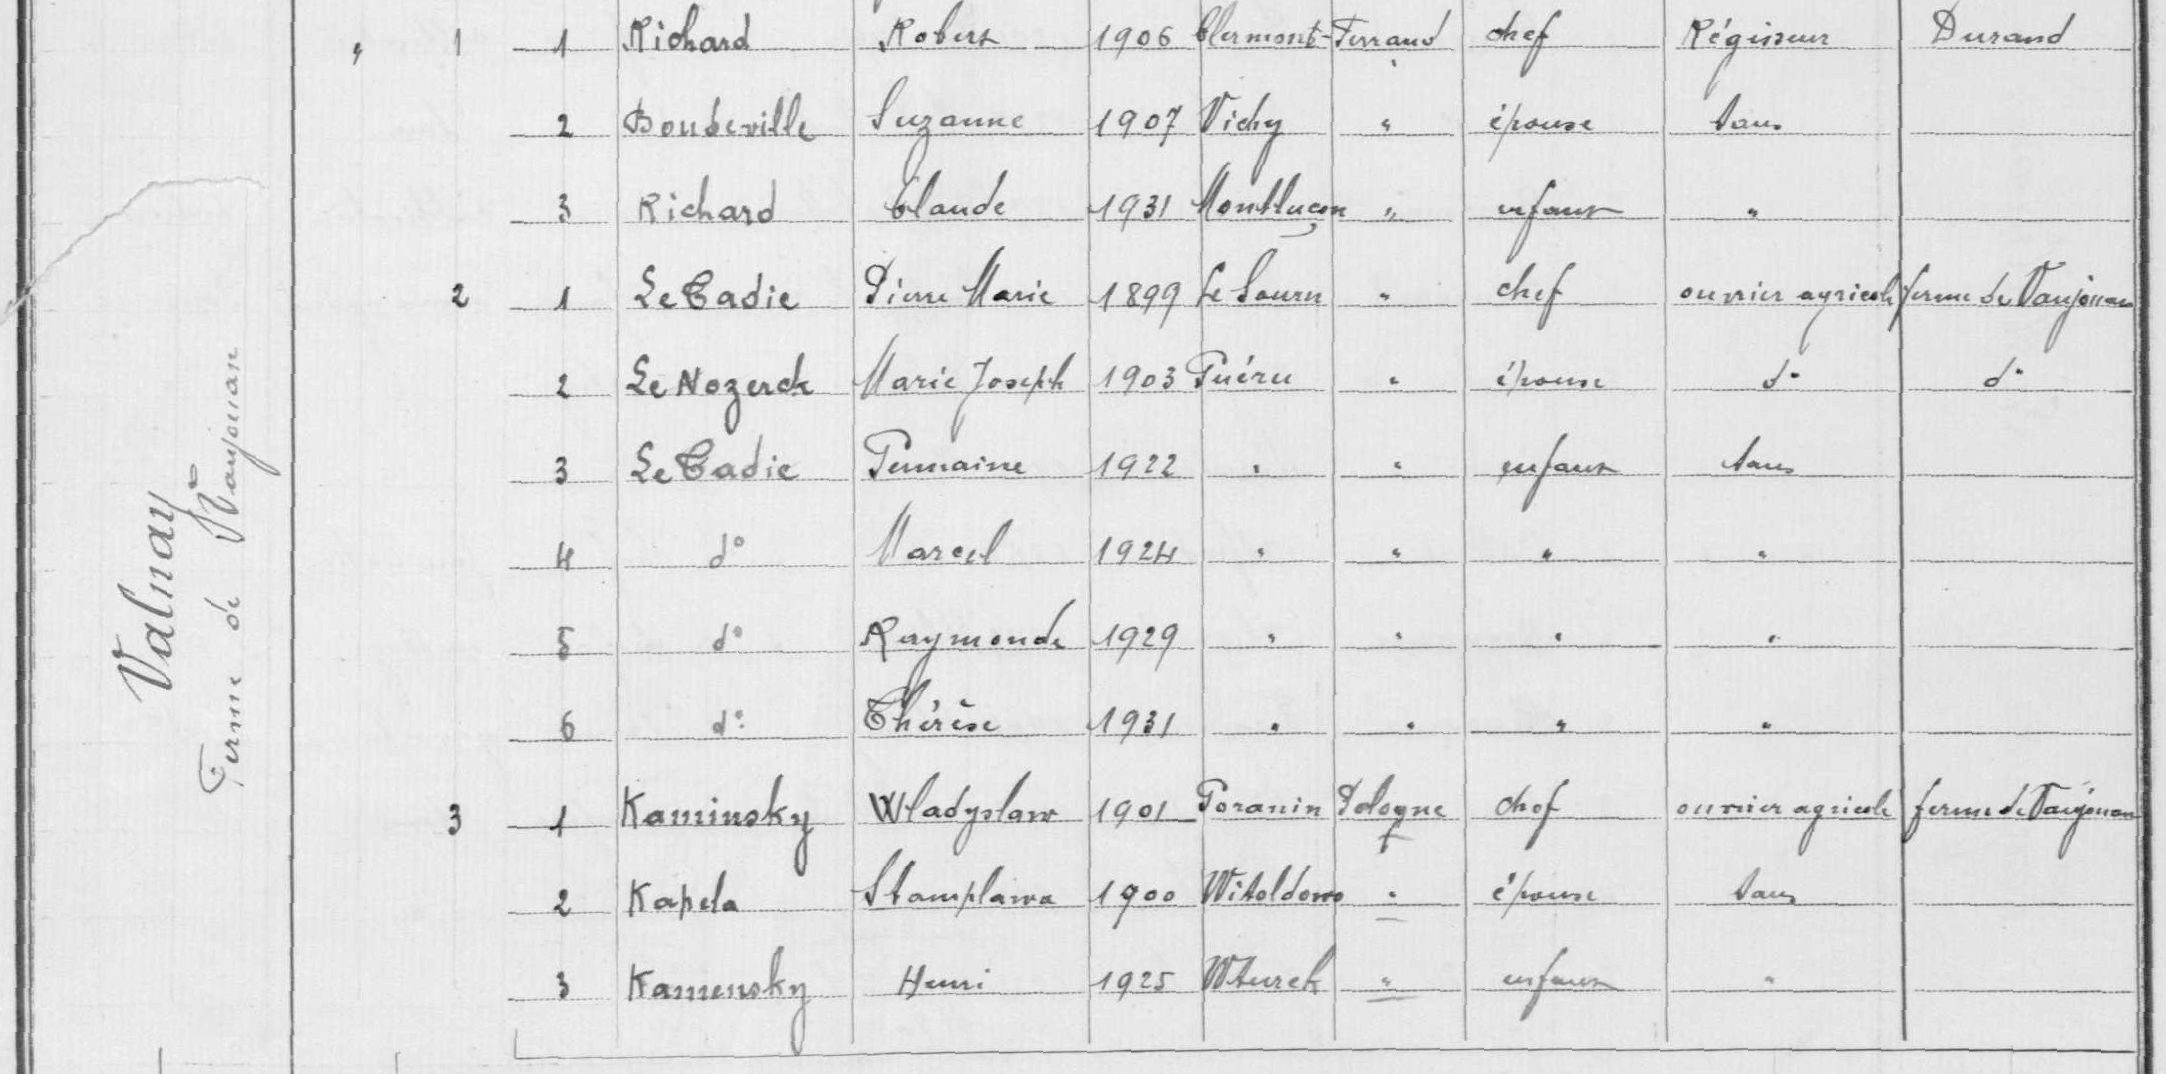 Valnay
Ferme de Vaujouan
" 1 1 Richard Robert 1906 Clermont-Ferrand chef Régisseur Durand
2 Boudeville Suzanne 1907 Vichy " épouse sans
3 Richard Claude 1931 Montluçon " enfant "
2 1 Le Cadie Pierre Marie 1899 Le Sourn " chef ouvrier agricole ferme de Vaujouan
2 Le Nozerck Marie Joseph 1903 Guéru " épouse d° d°
3 Le Cadie Germaine 1922 " " enfant sans
4 d° Marcel 1924 " " " "
5 d° Raymonde 1929 " " " "
6 d° Thérèse 1931 " " " "
3 1 Kaminsky Wladyslaw 1901 Goranin Pologne chef ouvrier agricole ferme de Vaujouan
2 Kapela Stamplawa 1900 Witoldowo " épouse sans
3 Kamensky Henri 1925 WTurek " enfant "